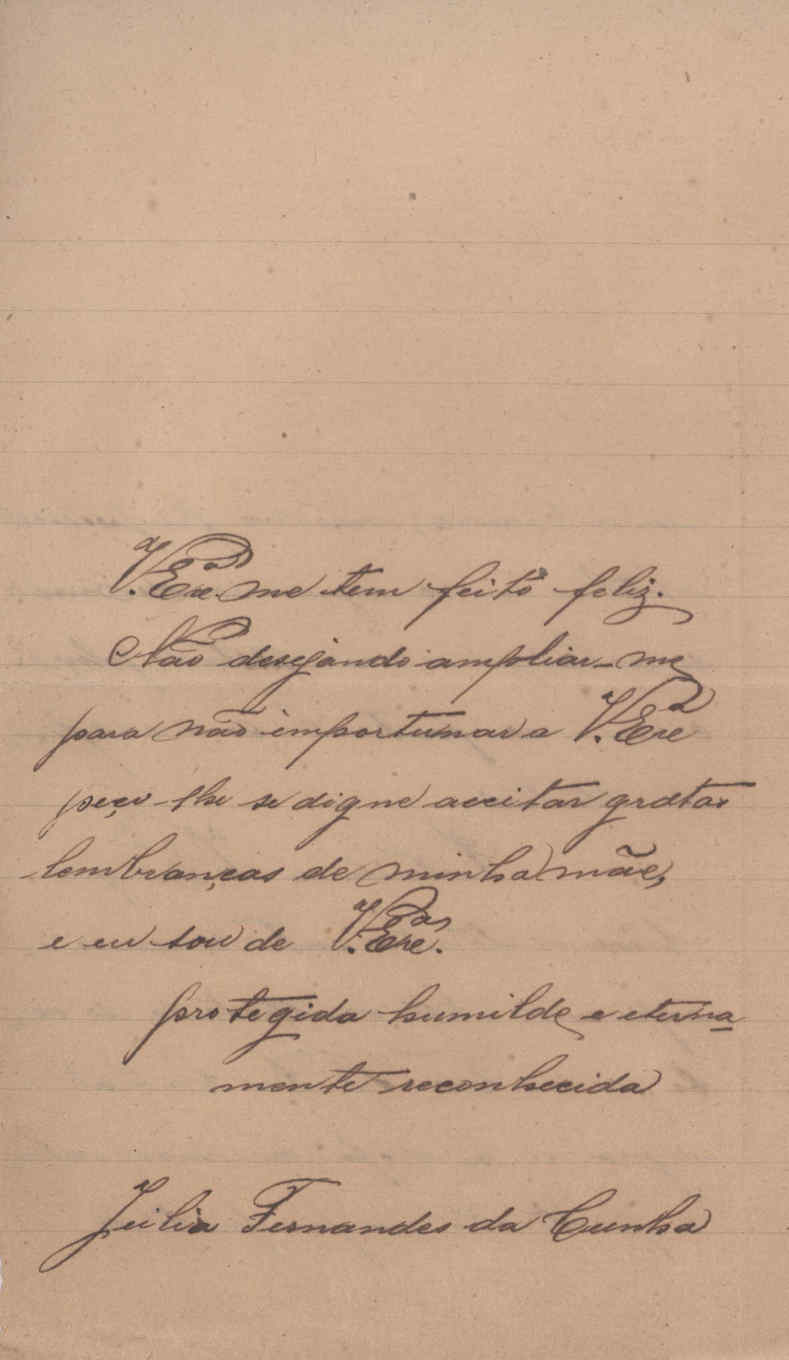 V. Ex.cia me tem feito feliz.
Não desejando ampliar-me
para não importunar a V. Exc.ia
peço-lhe se digne acceitar gratas
lembranças de minha mãe,
e eu sou de V. Exc.ias
protegida humilde e eterna
mente reconhecida
Julia Fernandes da Cunha